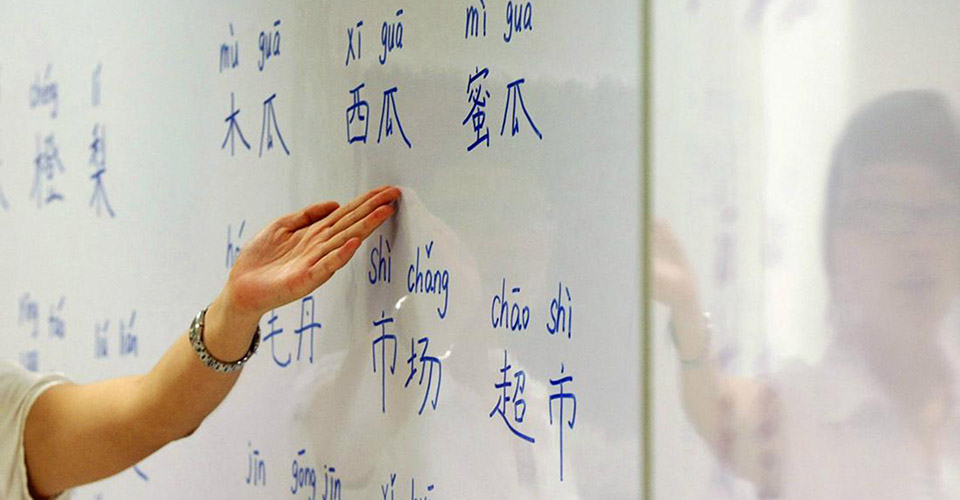 chéng lí mù guā xī guā mì guā
橙 梨 木瓜 西瓜 蜜瓜
shì chǎng chāo shì
毛丹 市场 超市
jīn gōng jīn